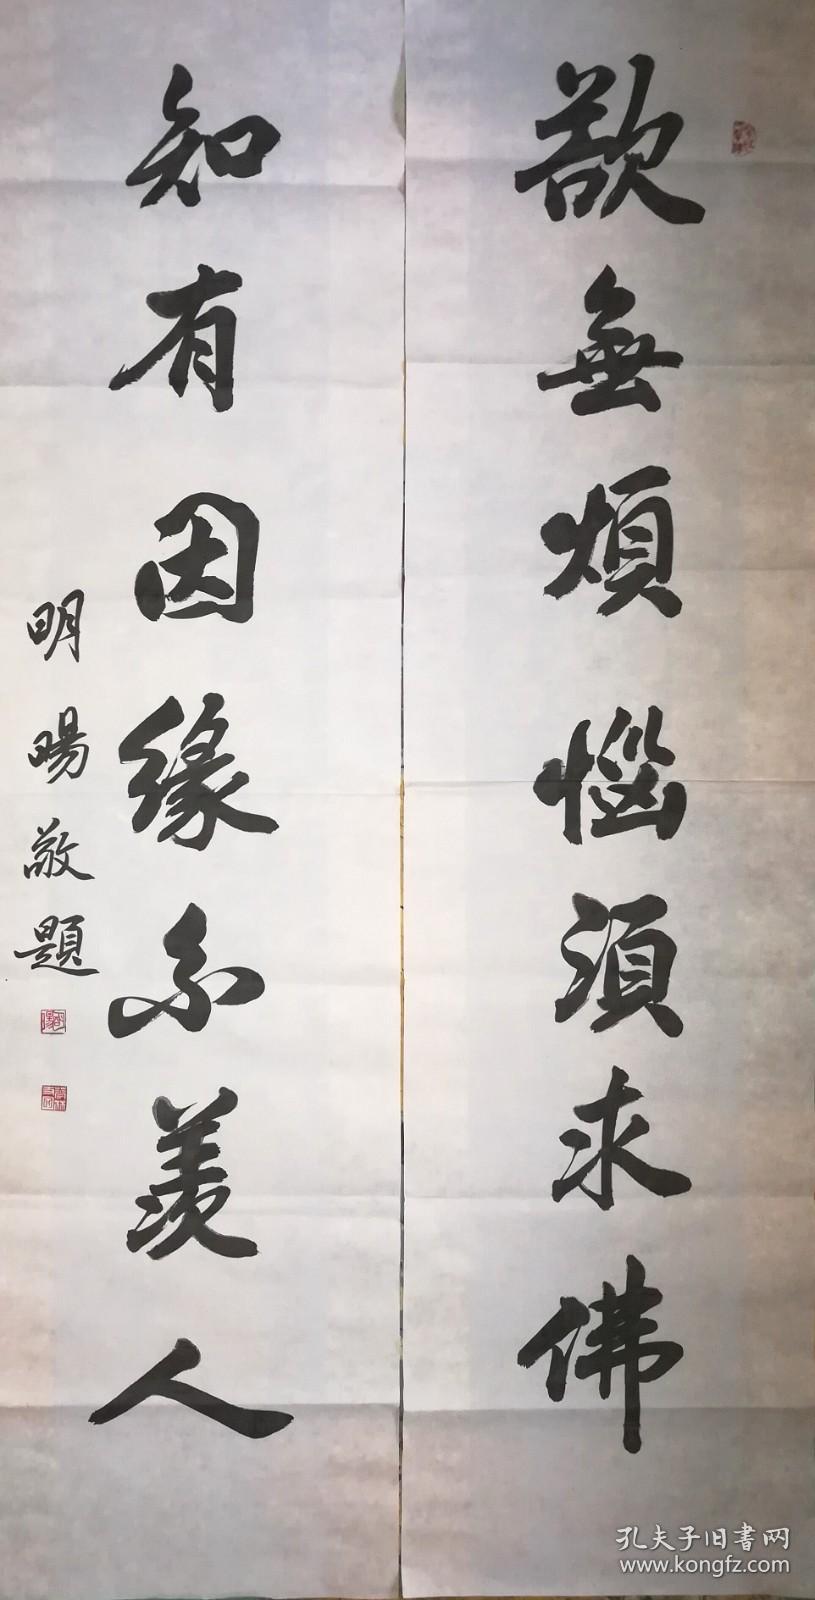 欲無煩惱須求佛
知有因緣不羨人
明暘敬題
孔夫子旧书网
www.kongfz.com